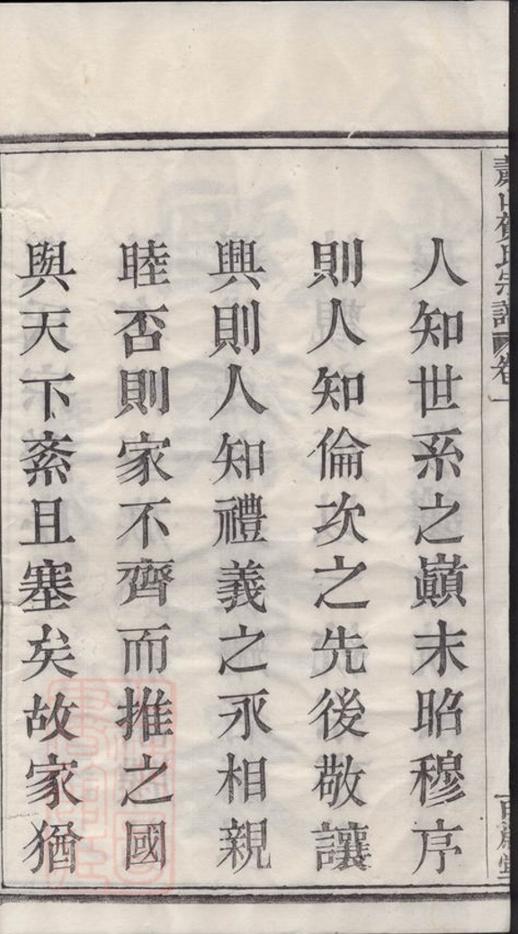 蕭山賀氏宗譜 卷一
人知世系之巔末昭穆序
則人知倫次之先後敬讓
興則人知禮義之永相親
睦否則家不齊而推之國
與天下紊且塞矣故家猶